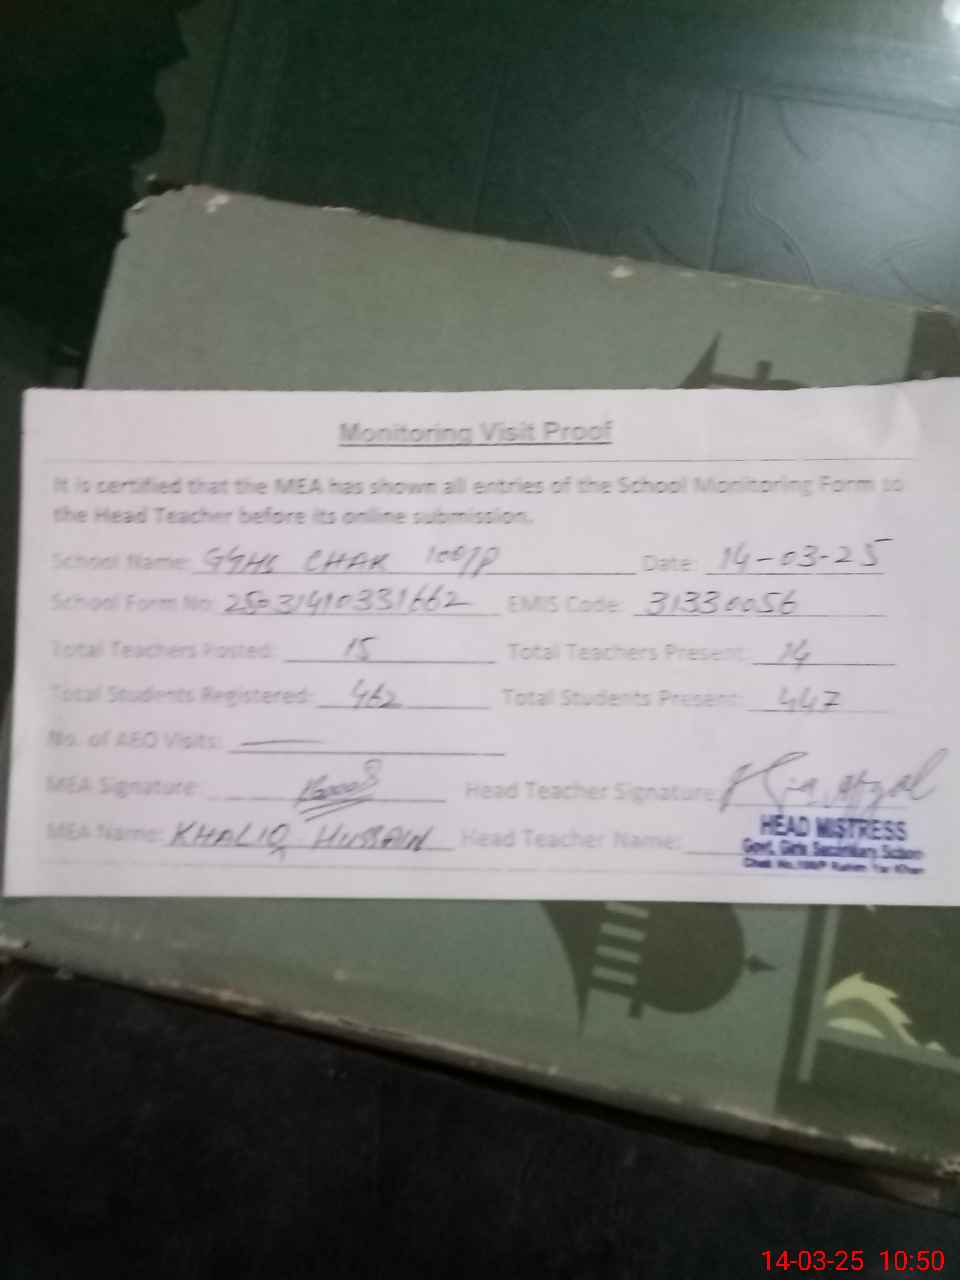 Monitoring Visit Proof
It is certified that the MEA has shown all entries of the School Monitoring Form to
the Head Teacher before its online submission.
School Name: GGHS CHAK 100/P Date: 14-03-25
School Form No: 25031410331662 EMIS Code: 31330056
Total Teachers Posted: 15 Total Teachers Present: 14
Total Students Registered: 462 Total Students Present: 447
No. of AEO Visits: —
MEA Signature: Head Teacher Signature: Afzal
MEA Name: KHALIQ HUSSAIN Head Teacher Name:
HEAD MISTRESS
Govt. Girls Secondary School
Chak No.100/P Rahim Yar Khan
14-03-25 10:50